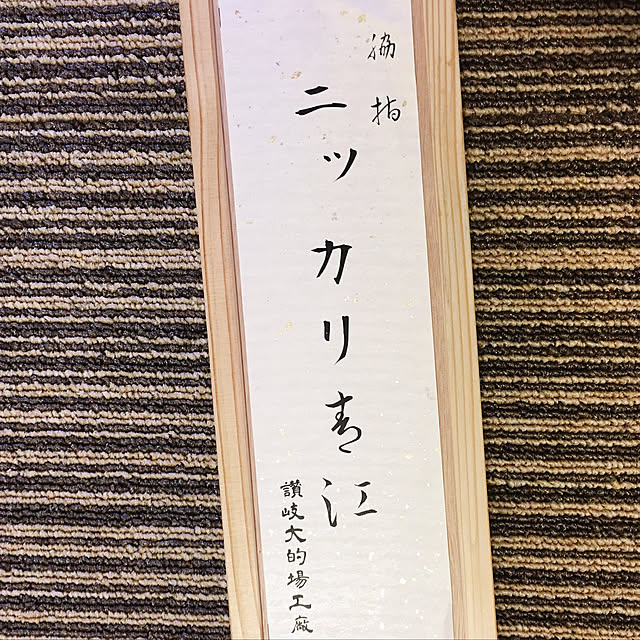 脇指
ニッカリ青江
讃岐大的場工廠